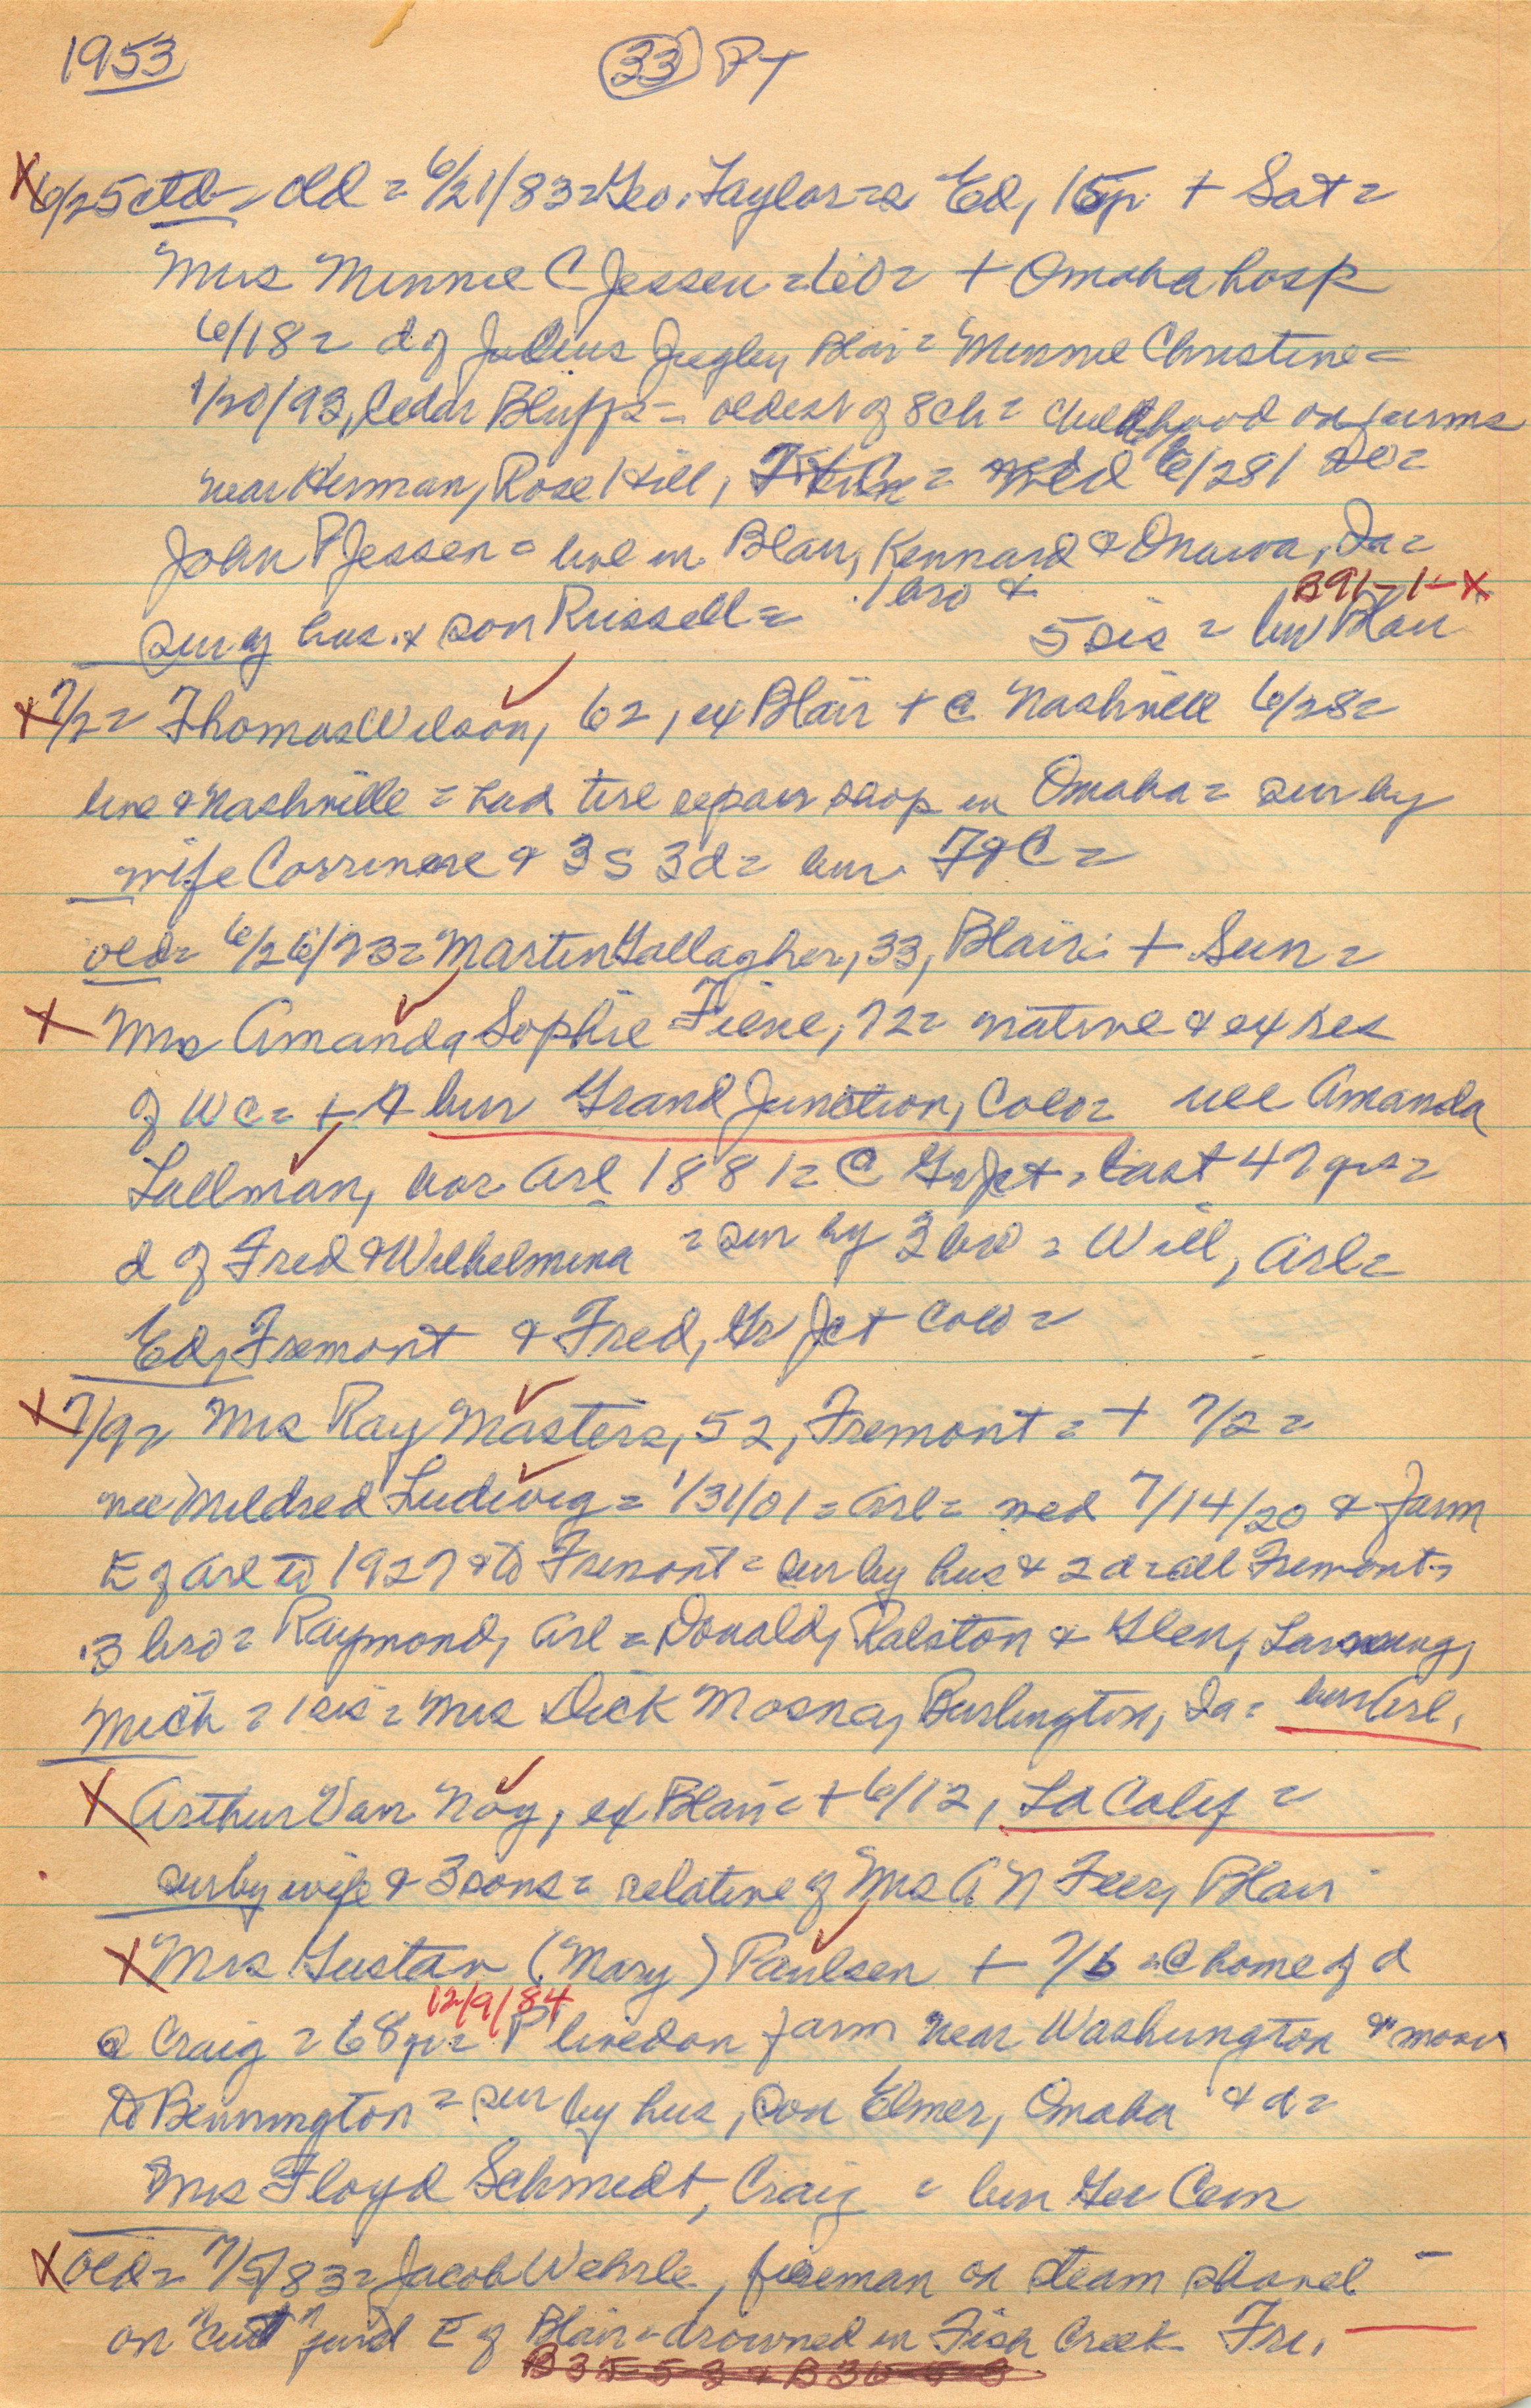 1953 (33) PT
X 6/25 ctd = old = 6/21/83 = Geo. Taylor = s Ed, 15yr + Sat =
Mrs Minnie C Jessen = 60 = + Omaha hosp
6/18 = d of Julius Jugley Blair = Minnie Christine =
1/20/93, Cedar Bluffs = oldest of 8 ch = childhood on farms
near Herman, Rose Hill, = med 6/281 to =
John P Jessen = live in Blair, Kennard & Onawa, Ia =
B91-1-X
sur by hus. & son Russell = 1 bro & 5 sis = bur Blair
X 7/2 = Thomas Wilson, 62, ex Blair + @ Nashville 6/28 =
live @ Nashville = had tire repair shop in Omaha = sur by
wife Corrinere & 3 s 3 d = bur. 7&C =
old = 6/26/73 = Martin Gallagher, 33, Blair. + Sun =
X Mrs Amanda Sophie Fiene, 72 = native & ex res
of WC = + & bur Grand Junction, Colo = nee Amanda
Lallman, bor Arl 1881 = @ Gr Jct = last 47 yrs =
d of Fred & Wilhelmina = sur by 3 bro = Will, Arl =
Ed, Fremont & Fred, Gr Jct Colo =
X 7/9 = Mrs Ray Masters, 52, Fremont = + 7/2 =
nee Mildred Ludwig = 1/31/01 = Arl = med 7/14/20 & farm
E of Arl to 1927 & to Fremont = sur by hus & 2 d = all Fremont =
3 bro = Raymond, Arl = Donald, Ralston & Glen, Lansing,
Mich = 1 sis = Mrs Dick Mosna, Burlington, Ia = bur Arl.
X Arthur Van Noy, ex Blair = + 6/12, LA Calif =
sur by wife & 3 sons = relative of Mrs A N Feer, Blair
X Mrs Gustav (Mary) Paulsen + 7/6 = @ home of d
12/9/84
@ Craig = 68 yr = P lived on farm near Washington & mov
to Bennington = sur by hus, son Elmer, Omaha & d =
Mrs Floyd Schmidt, Craig = bur Ger Cem
X old = 7/5/83 = Jacob Wehrle, fireman on steam shovel
on "cut" just E of Blair = drowned in Fish Creek Fri.
B35-5-3 & B36-5-3